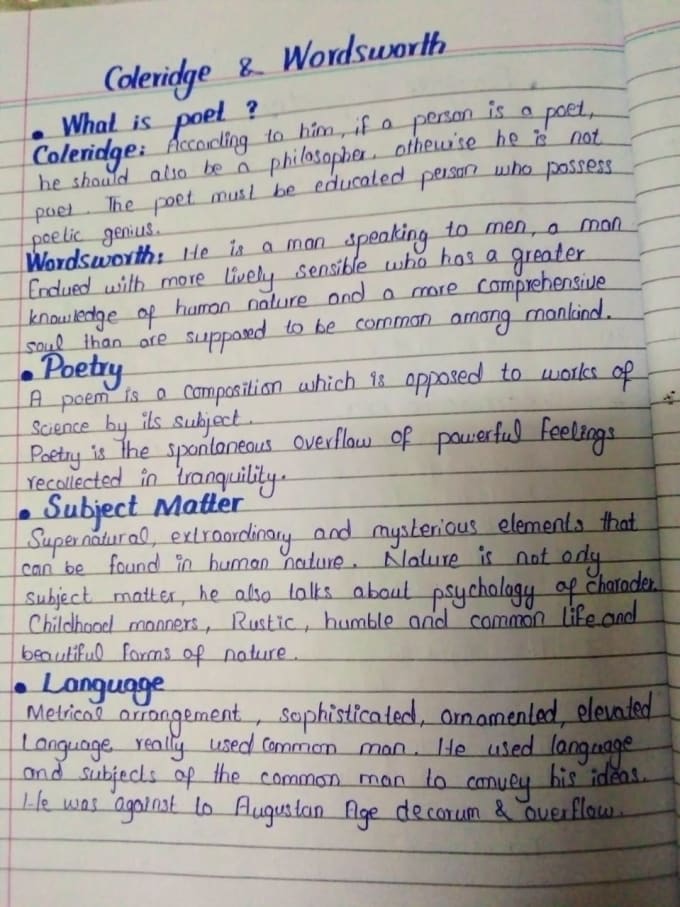 Coleridge & Wordsworth
• What is poet ?
Coleridge: According to him, if a person is a poet,
he should also be a philosopher. otheuise he is not
poet. The poet must be educated person who possess
poetic genius.
Wordsworth: He is a man speaking to men, a man
Endued with more lively sensible who has a greater
knowledge of human nature and a more comprehensive
soul than are supposed to be common among mankind.
• Poetry
A poem is a composition which is opposed to works of
Science by its subject.
Poetry is the spontaneous overflow of powerful feelings
recollected in tranquility.
• Subject Matter
Supernatural, extraordinary and mysterious elements that
can be found in human nature. Nature is not only
subject matter, he also talks about psychology of character.
Childhood manners, Rustic, humble and common life and
beautiful forms of nature.
• Language
Metrical arrangement, sophisticated, ornamented, elevated
Language really used common man. He used language
and subjects of the common man to convey his ideas.
He was against to Augustan Age decorum & overflow.